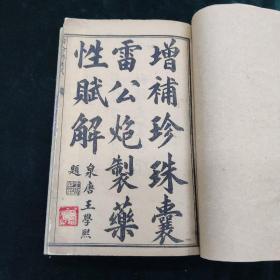 增補珍珠囊
雷公炮製藥
性賦解
泉唐王學熙
題